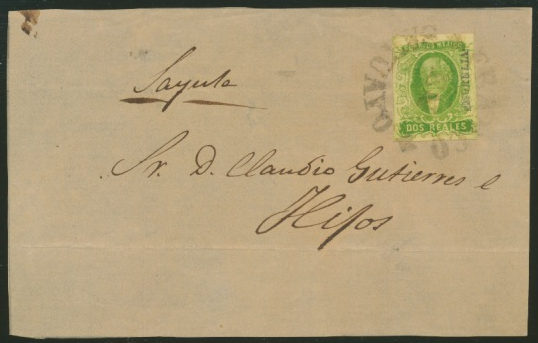 Sayula
Sr. D. Claudio Gutierres e
Hijos
CORREOS MEJICO
DOS REALES